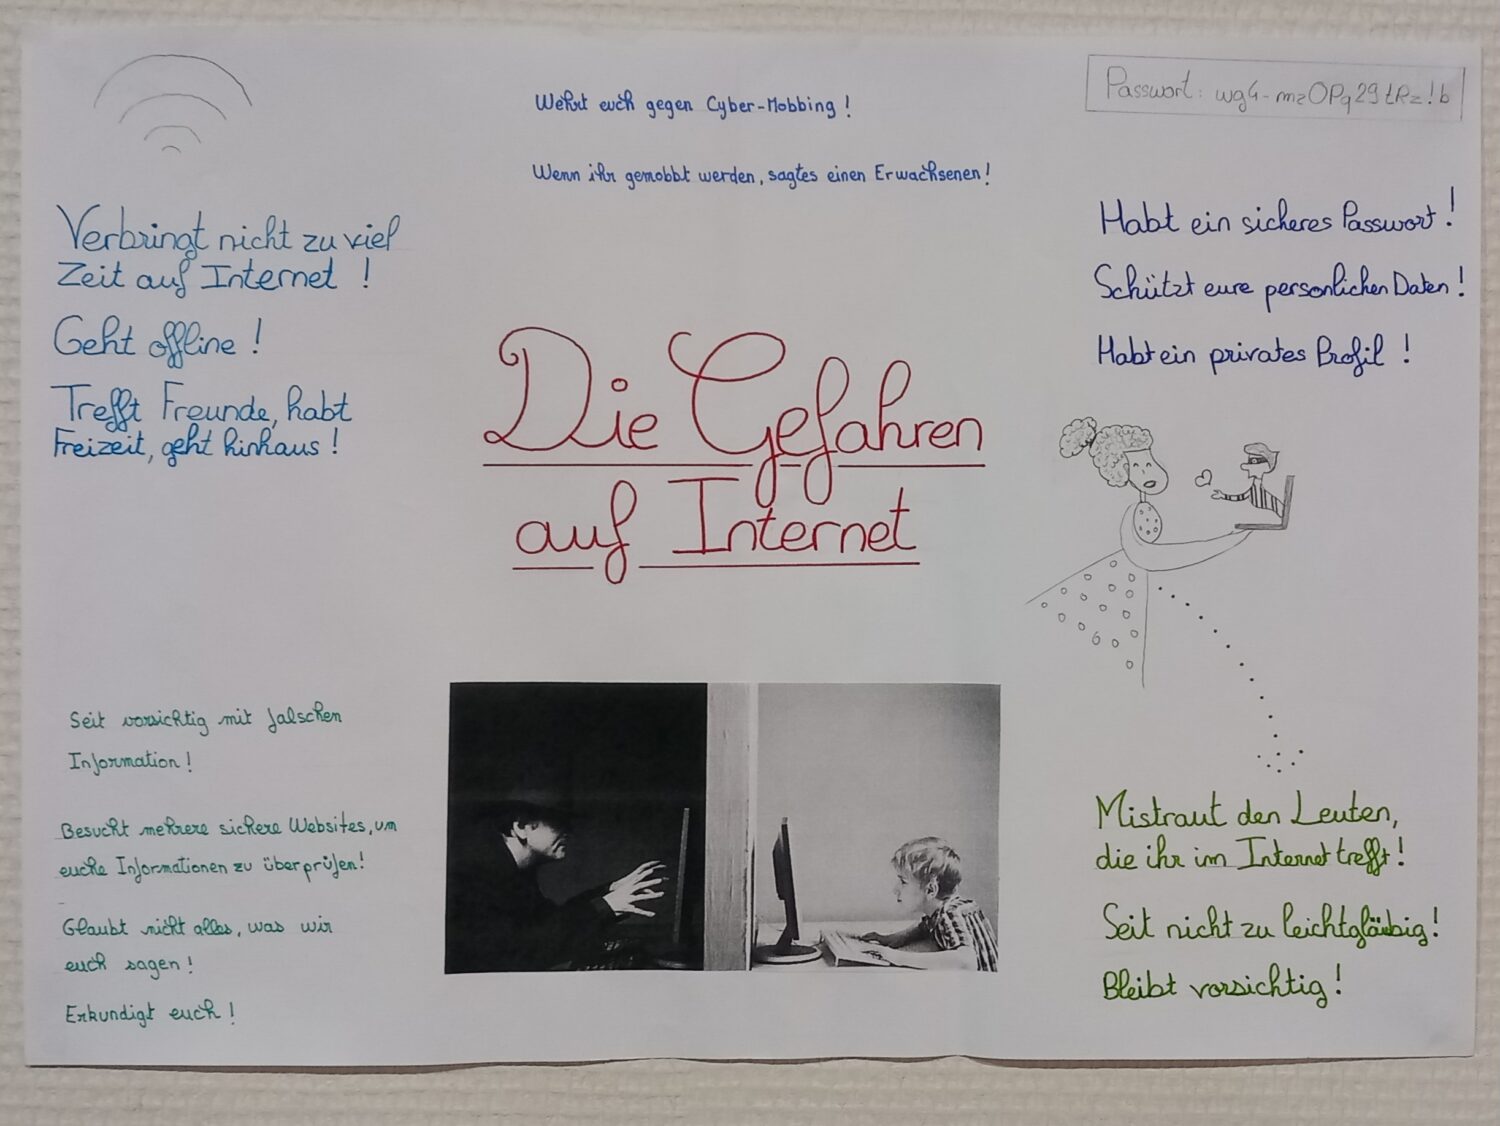 Wehrt euch gegen Cyber-Mobbing !
Wenn ihr gemobbt werden, sagtes einen Erwachsenen!
Passwort: wg4-mzOPq29tRz!b
Verbringt nicht zu viel
Zeit auf Internet !
Geht offline !
Trefft Freunde, habt
Freizeit, geht hinhaus !
Habt ein sicheres Passwort !
Schützt eure personlichen Daten !
Habt ein privates Profil !
Die Gefahren
auf Internet
Seit vorsichtig mit falschen
Information !
Besucht mehrere sichere Websites, um
euche Informationen zu überprüfen!
Glaubt nicht alles, was wir
euch sagen !
Erkundigt euch !
Mistraut den Leuten,
die ihr im Internet trefft !
Seit nicht zu leichtgläubig !
Bleibt vorsichtig !